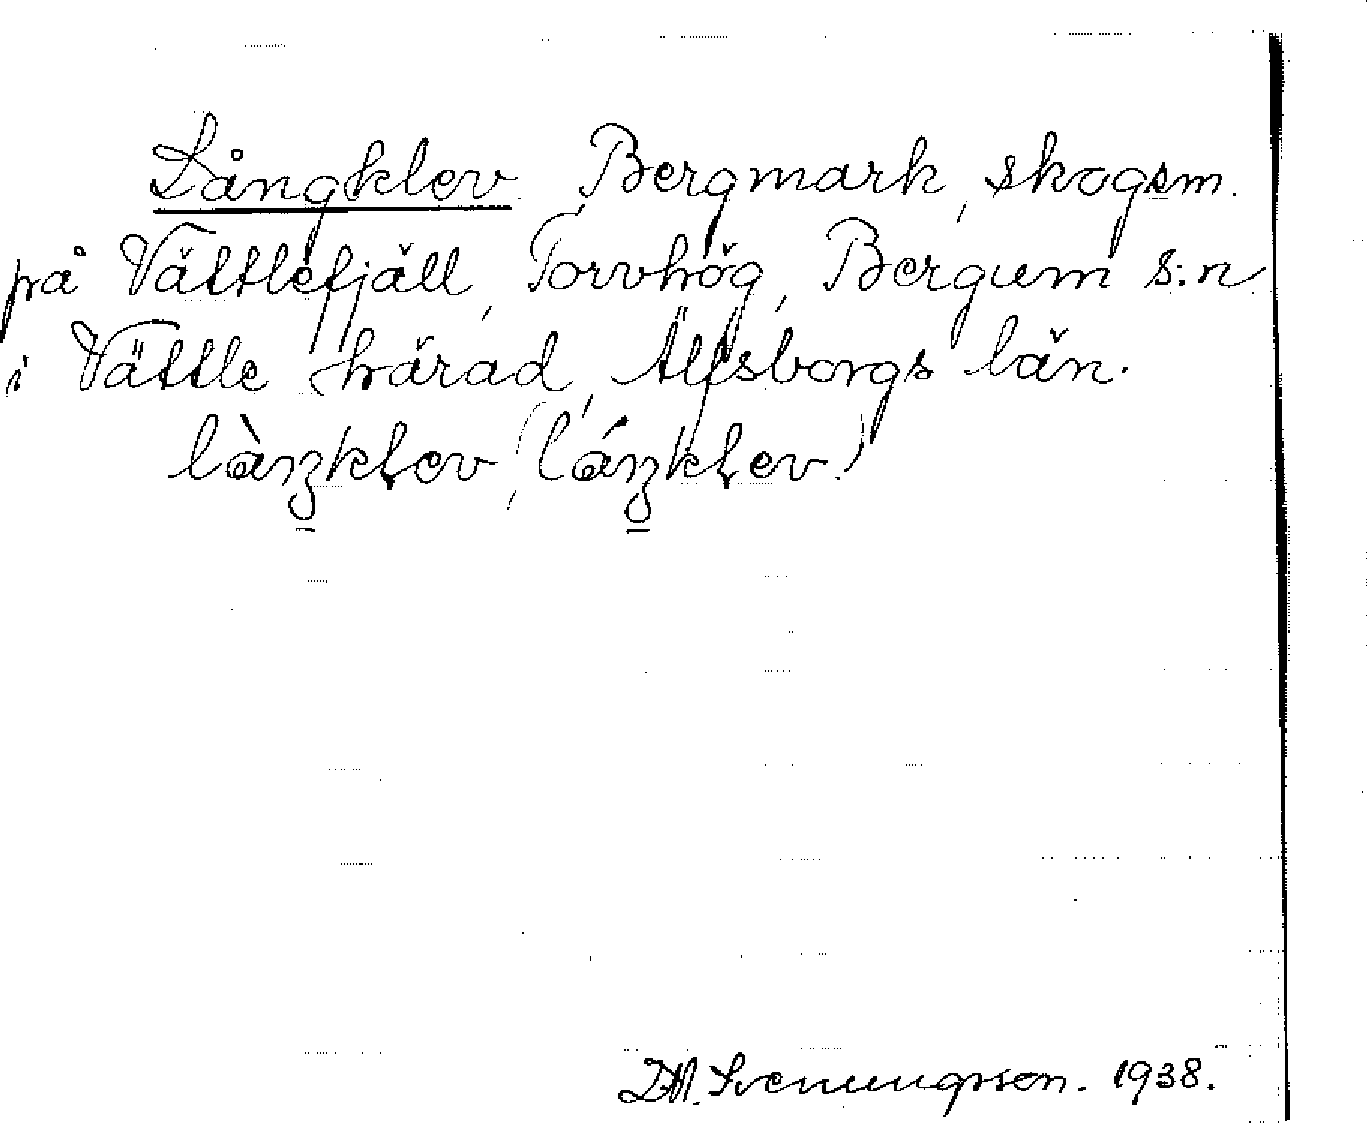 Långklev, Bergmark, skogsm.
på Vättlefjäll, Torvhög, Bergum s:n
i Vättle härad, Älfsborgs län.
D.M. Svenungsson. 1938.